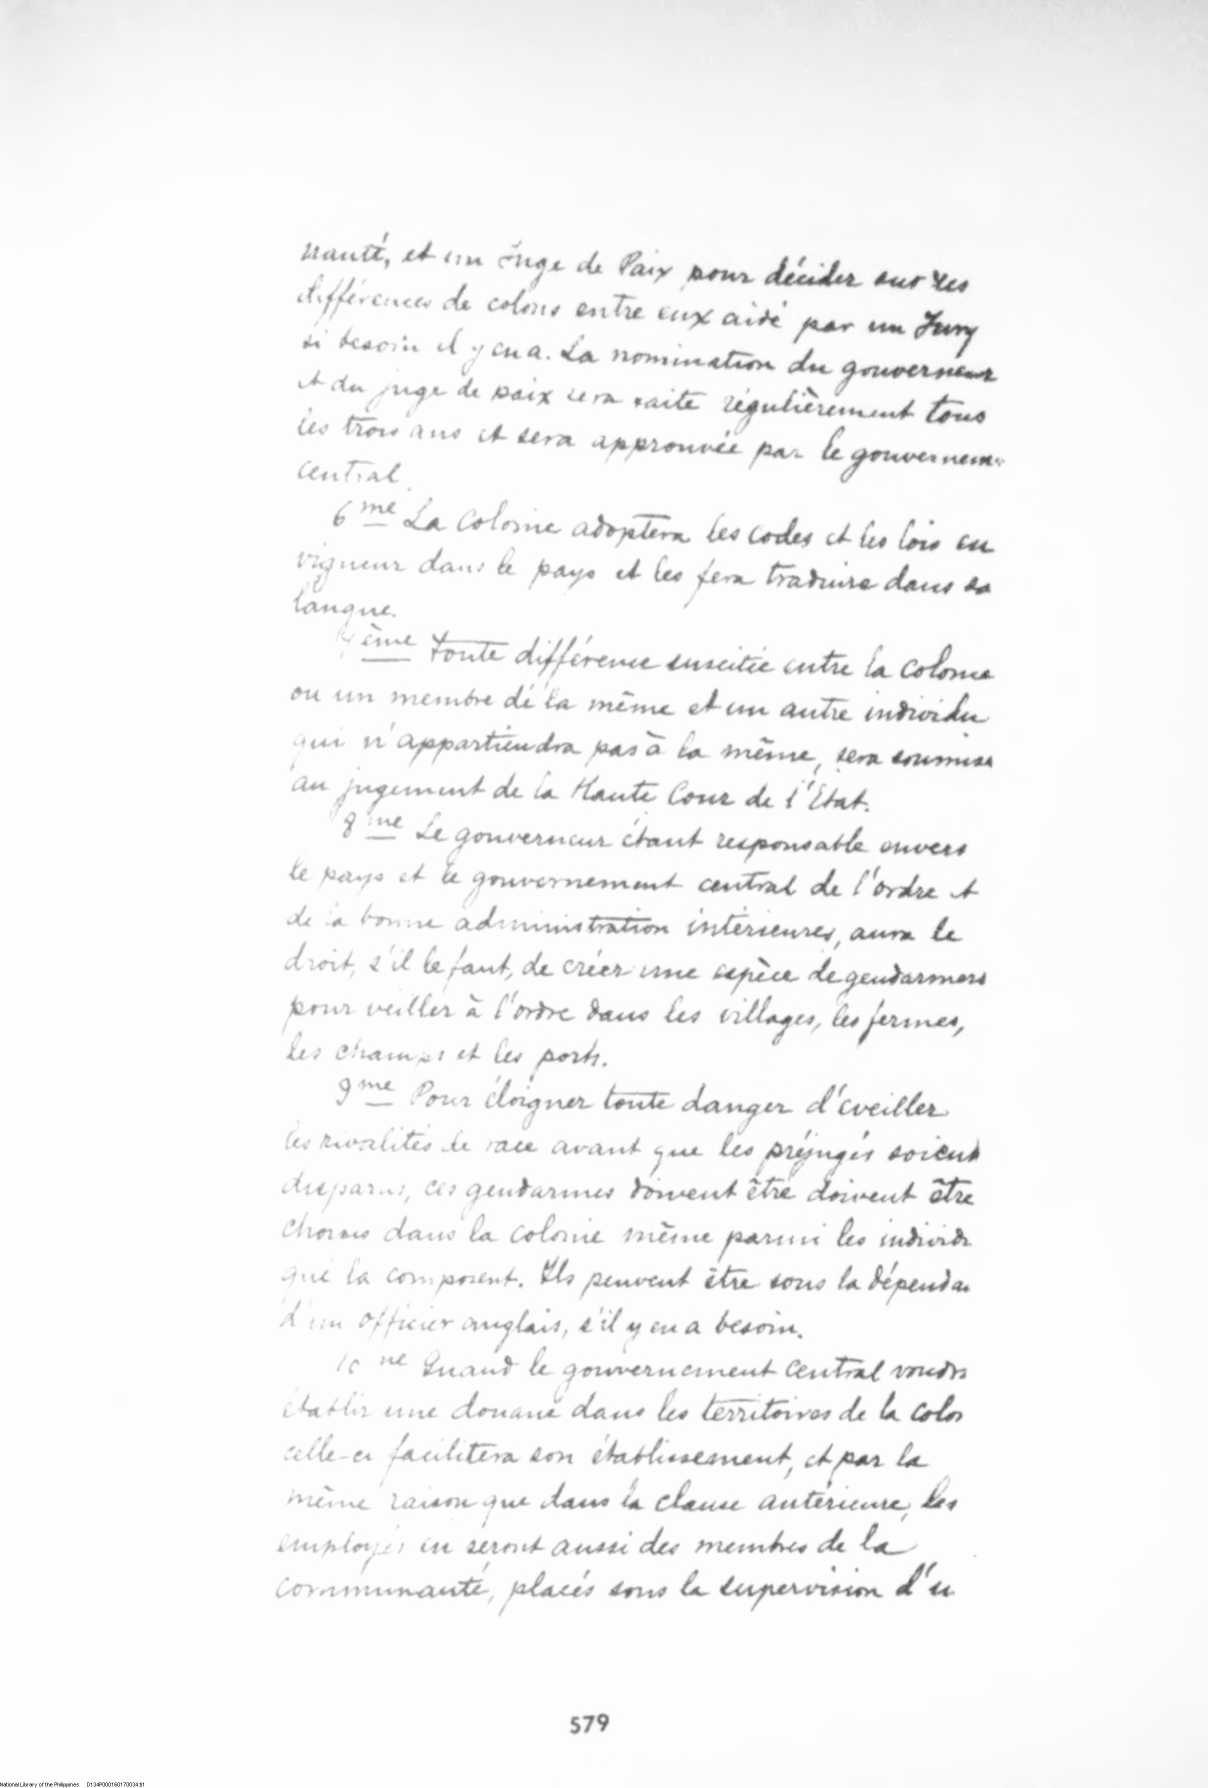 nauté, et un Juge de Paix pour décider sur les
différences de colons entre eux aidé par un Jury
si besoin il y en a. La nomination du gouverneur
et du juge de paix sera faite régulièrement tous
les trois ans et sera approuvée par le gouvernem
central.
6me La Colonie adoptera les codes et les lois en
vigueur dans le pays et les fera traduire dans sa
langue.
ème Toute différence suscitée entre la colonie
ou un membre de la même et un autre individu
qui n'appartiendra pas à la même, sera soumise
au jugement de la Haute Cour de l'Etat.
8me Le gouverneur étant responsable envers
le pays et le gouvernement central de l'ordre et
de la bonne administration intérieures, aura le
droit, s'il le faut, de créer une espèce de gendarmers
pour veiller à l'ordre dans les villages, les fermes,
les champs et les ports.
9me Pour éloigner toute danger d'éveiller
les rivalités de race avant que les préjugés soient
disparus, ces gendarmes doivent être doivent être
choisis dans la colonie même parmi les individ
qui la composent. Ils peuvent être sous la dépendan
d'un officier anglais, s'il y en a besoin.
10me Quand le gouvernement Central voudra
établir une douane dans les territoires de la colon
celle-ci facilitera son établissement, et par la
même raison que dans la clause antérieure, les
employés en seront aussi des membres de la
communauté, placés sous la supervision d'u
579
National Library of the Philippines